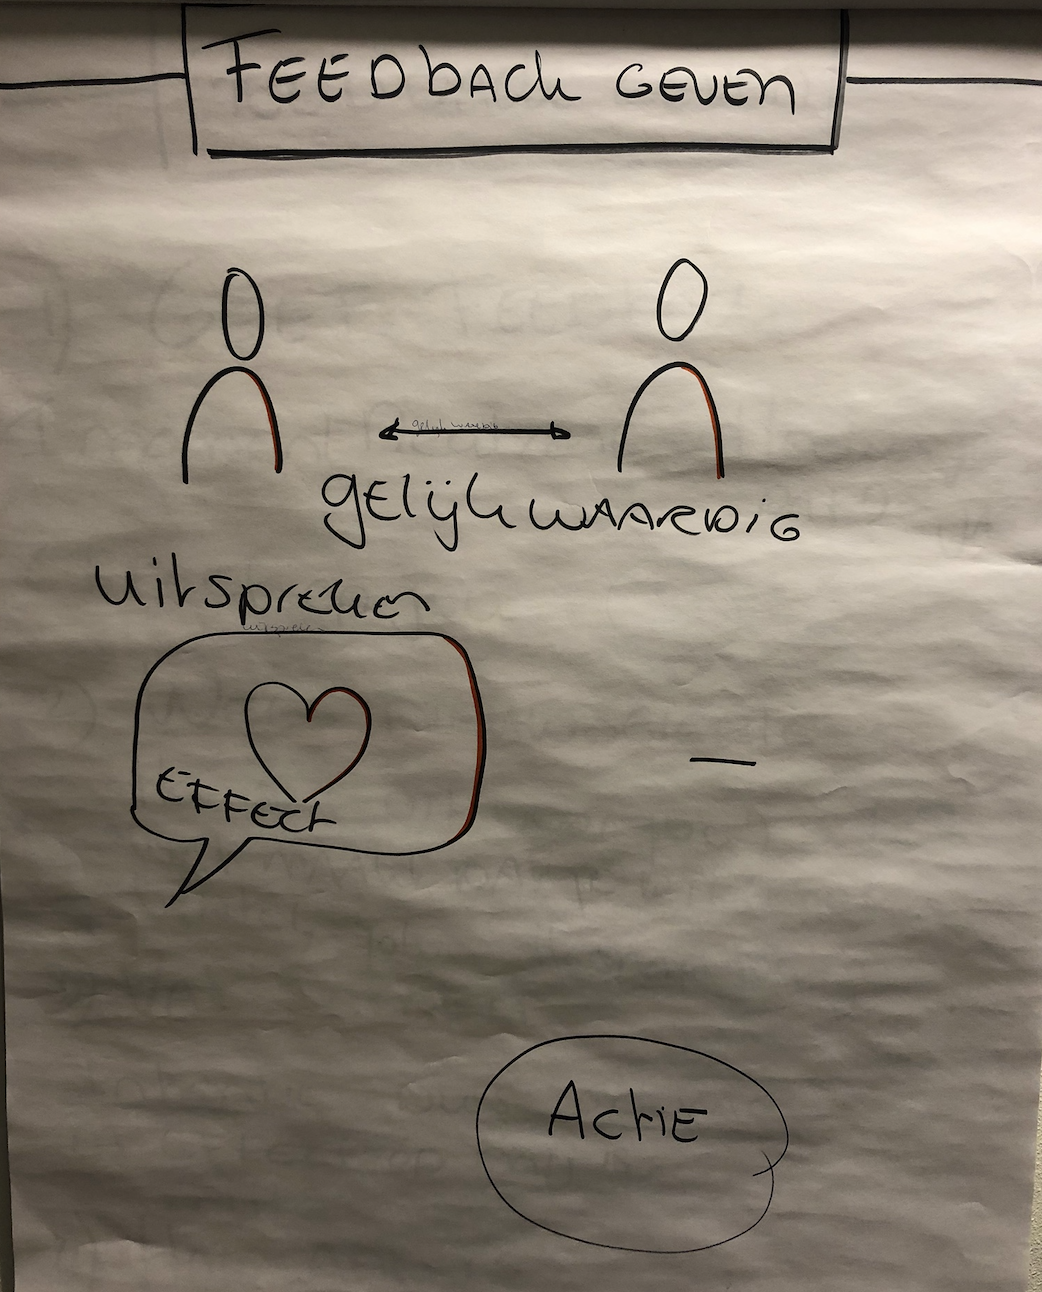 FEEDbACk GEVEN
gelijkwaardig
gElijkWAARDiG
uitspreken
uitspreken
EFFEct
ActiE